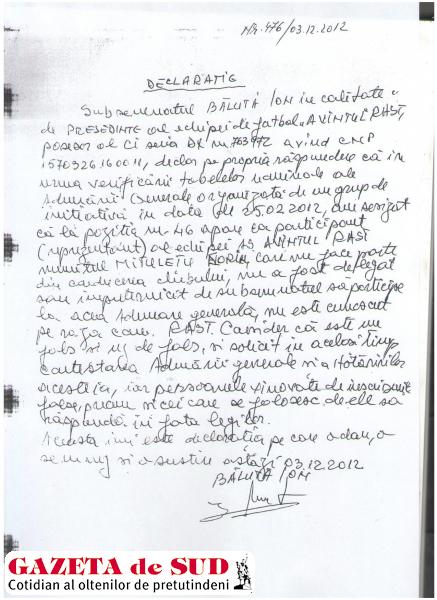 Nr. 476/03.12.2012
DECLARAȚIE
Subsemnatul BĂLUȚĂ ION in calitate
de PRESEDINTE al echipei de fotbal „AVINTUL RAST,
posesor al CI seria DX nr. 763972 avind CNP
declar pe propria răspundere că in
urma verificării tabelelor nominale ale
Adunării Generale organizată de un grup de
inițiativă in data de 25.02.2012, am sesizat
că la poziția nr 46 apare ca participant
(reprezentant) al echipei AVINTUL RAST
numitul MITULETU FLORIN, care nu face parte
din conducerea clubului, nu a fost delegat
sau imputernicit de subsemnatul să participe
la acea Adunare generală, nu este cunoscut
pe raza com. RAST. Consider că este un
fals si uz de fals, si solicit in acelasi timp
contestarea Adunării generale si a Hotăririlor
acesteia, iar persoanele vinovate de inscrisurile
false, precum si cei care se folosesc de ele să
răspundă in fata legilor.
Aceasta imi este declaratia pe care o dau, o
semnez si o sustin astăzi 03.12.2012
BĂLUȚĂ ION
GAZETA de SUD
Cotidian al oltenilor de pretutindeni